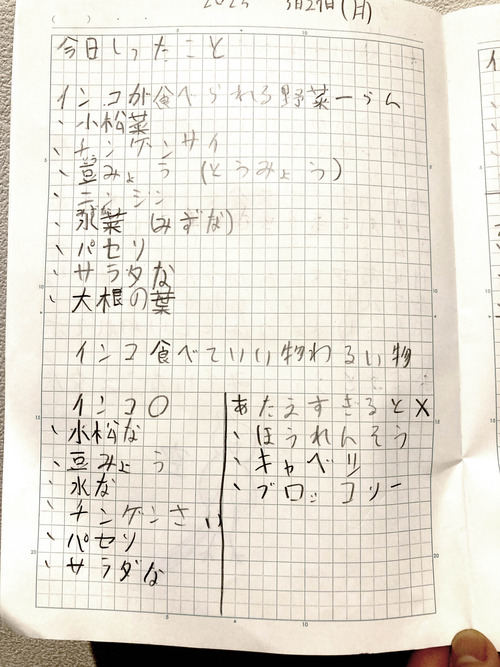 2023 3月27日(月)
今日しったこと
インコが食べられる野菜一らん
、小松菜
、チンゲンサイ
、豆みょう (とうみょう)
、ニンジン
、水菜 (みずな)
、パセリ
、サラダな
、大根の葉
インコ食べていい物わるい物
インコ○
、小松な
、豆みょう
、水な
、チンゲンさい
、パセリ
、サラダな
あたえすぎると×
、ほうれんそう
、キャベツ
、ブロッコリー